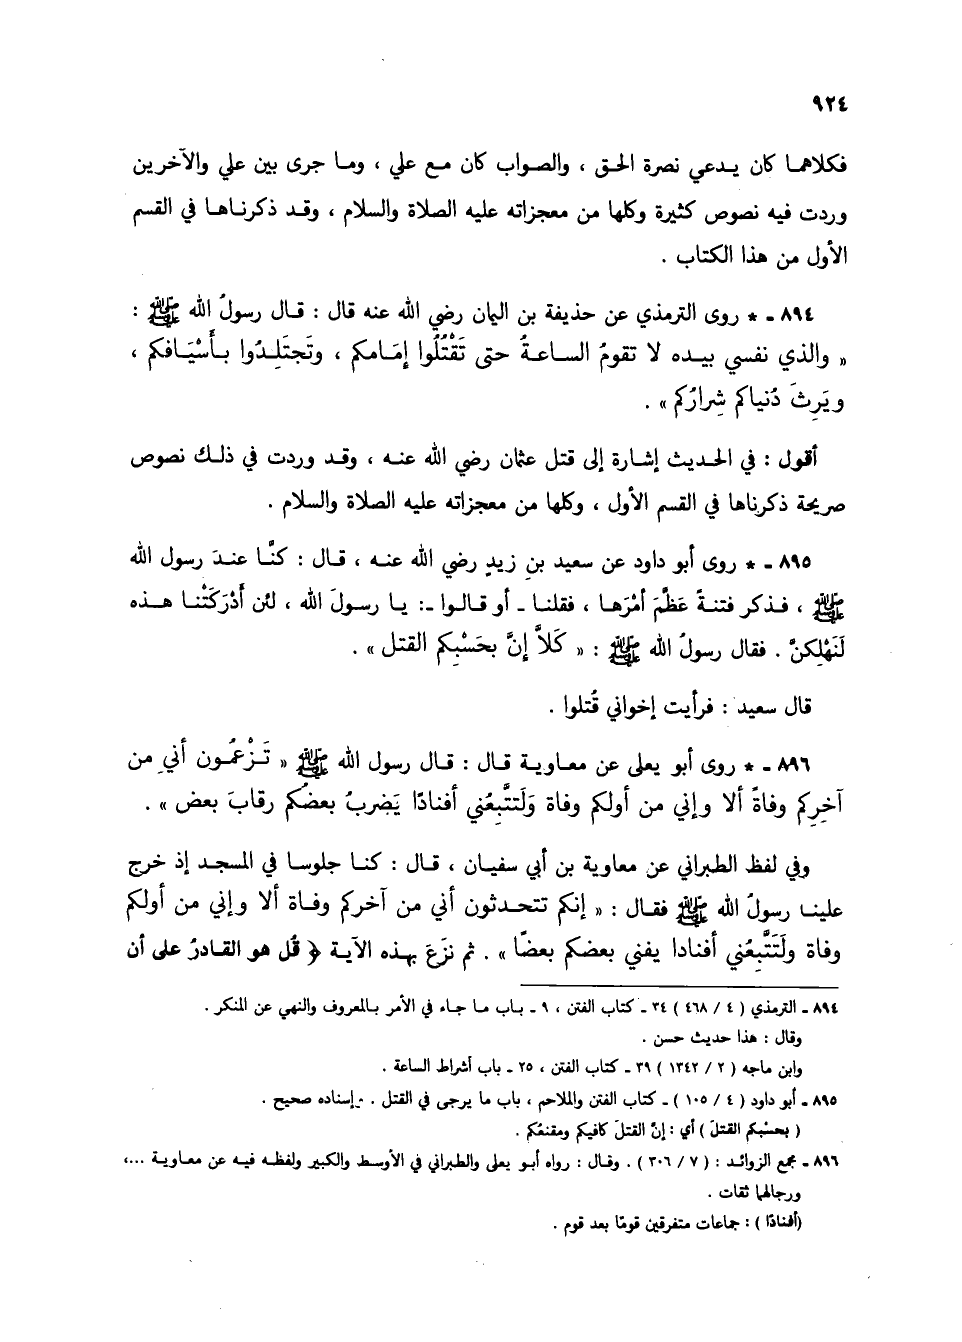 ٩٢٤
فكلاهما كان يدعي نصرة الحق ، والصواب كان مع علي ، وما جرى بين علي والآخرين
وردت فيه نصوص كثيرة وكلها من معجزاته عليه الصلاة والسلام ، وقد ذكرناها في القسم
الأول من هذا الكتاب .
٨٩٤ - * روى الترمذي عن حذيفة بن اليمان رضي الله عنه قال : قال رسولُ الله ﷺ :
« والذي نفسي بيده لا تقومُ الساعةُ حتى تَقْتُلُوا إمَامكم ، وتَجتَلِدُوا بأسْيَافكم ،
ويَرِثَ دُنياكم شِرارُكم » .
أقول : في الحديث إشارة إلى قتل عثمان رضي الله عنه ، وقد وردت في ذلك نصوص
صريحة ذكرناها في القسم الأول ، وكلها من معجزاته عليه الصلاة والسلام .
٨٩٥ - * روى أبو داود عن سعيد بنِ زيدٍ رضي الله عنه ، قال : كنَّا عندَ رسول الله
ﷺ ، فذكر فتنةً عَظَّمَ أمْرَها ، فقلنا - أو قالوا -: يا رسولَ الله ، لئن أدْرَكَتْنا هذه
لَنَهْلِكنَّ . فقال رسولُ الله ﷺ : « كَلاَّ إنَّ بحَسْبِكم القتل » .
قال سعيد : فرأيت إخواني قُتلوا .
٨٩٦ - * روى أبو يعلى عن معاوية قال : قال رسول الله ﷺ « تَزْعُمون أني من
آخِرِكم وفاةً ألا وإني من أولكم وفاة وَلَتتَّبعُني أفنادًا يَضربُ بعضُكم رقابَ بعض » .
وفي لفظ الطبراني عن معاوية بن أبي سفيان ، قال : كنا جلوسا في المسجد إذ خرج
علينا رسولُ الله ﷺ فقال : « إنكم تتحدثون أني من آخركم وفاة ألا وإني من أولكم
وفاة ولَتَتَّبعُني أفنادا يفني بعضكم بعضًا » . ثم نزَعَ بهذه الآية ﴿ قُل هو القادرُ على أن
٨٩٤ - الترمذي ( ٤ / ٤٦٨ ) ٣٤ - كتاب الفتن ، ٩ - باب ما جاء في الأمر بالمعروف والنهي عن المنكر .
وقال : هذا حديث حسن .
وابن ماجه ( ٢ / ١٣٤٢ ) ٣٩ - كتاب الفتن ، ٢٥ - باب أشراط الساعة .
٨٩٥ - أبو داود ( ٤ / ١٠٥ ) - كتاب الفتن والملاحم ، باب ما يرجى في القتل . وإسناده صحيح .
( بحسْبِكم القتلَ ) أي : إنَّ القتلَ كافيكم ومقنعُكم .
٨٩٦ - مجمع الزوائد : ( ٧ / ٣٠٦ ) . وقال : رواه أبو يعلى والطبراني في الأوسط والكبير ولفظه فيه عن معاوية ...،
ورجالهما ثقات .
(أفنادًا ) : جماعات متفرقين قومًا بعد قوم .